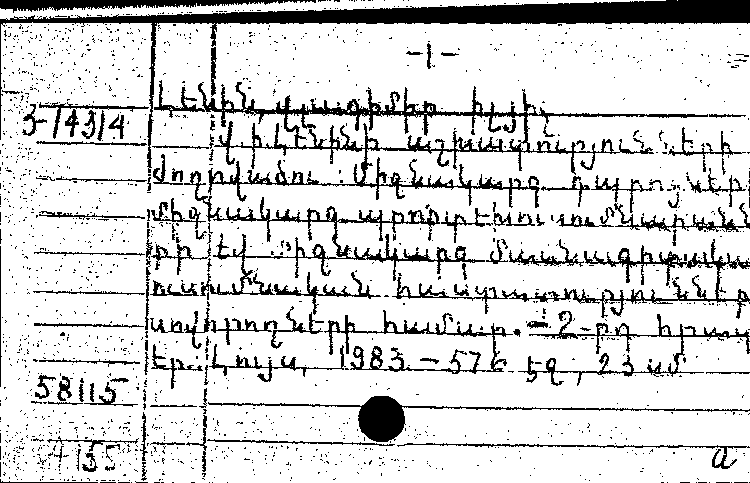 -1-
Լենին, Վլադիմիր Իլյիչ
3-14314
Վ. Ի. Լենինի աշխատությունների
ժողովածու : Միջնակարգ դպրոցների
միջնակարգ պրոֆտեխուսումնարաննե
րի եվ միջնակարգ մասնագիտական
ուսումնական հաստատություններ
սովորողների համար. - 2-րդ հրատ
Եր.: Լույս, 1983. - 576 էջ, 23 սմ
58115
155
a